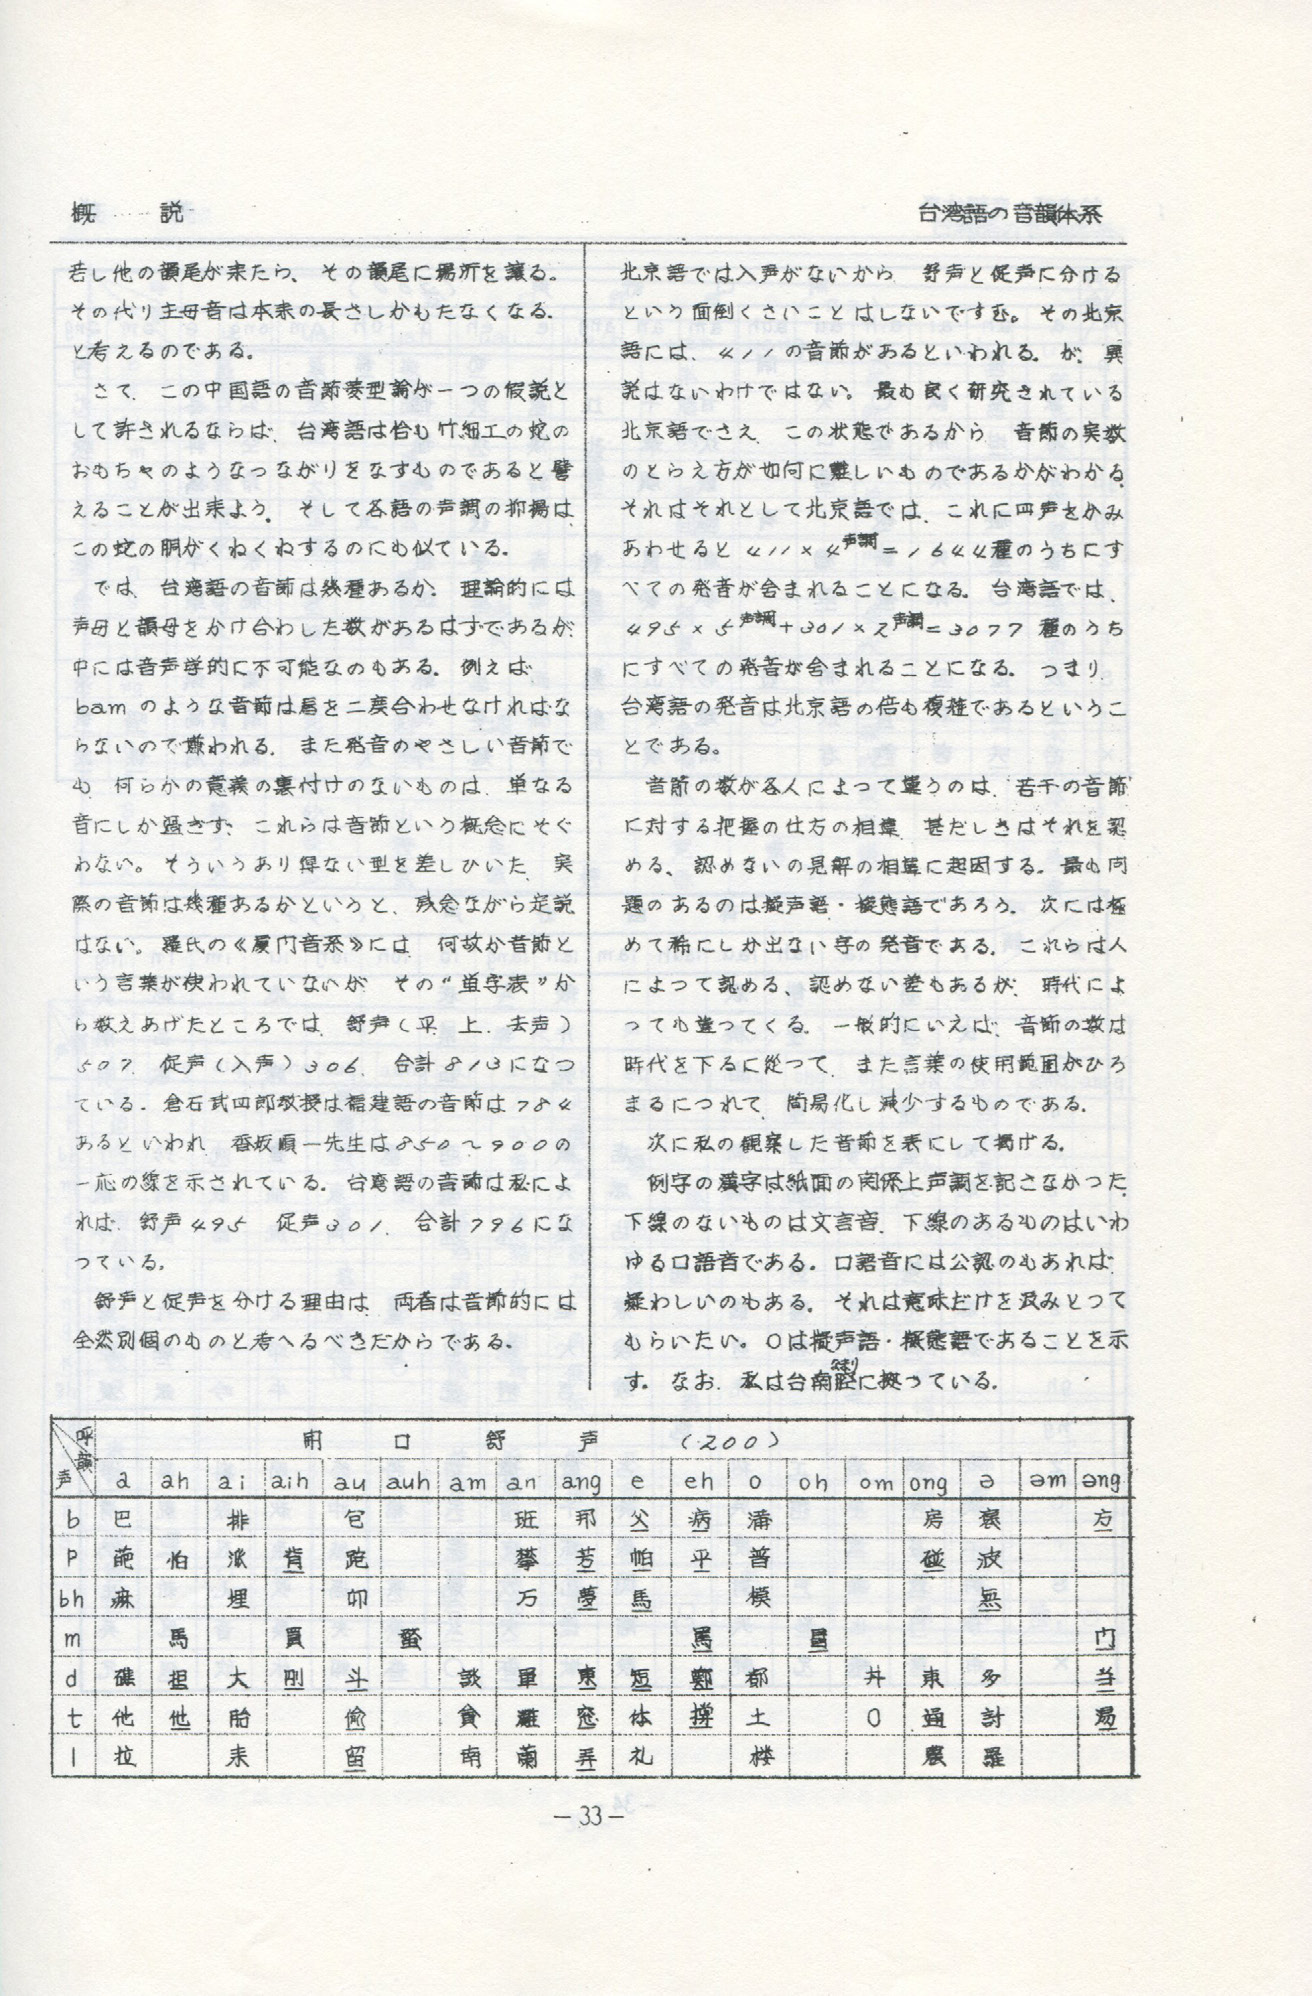 概　　説
台湾語の音韻体系
若し他の韻尾が来たら、その韻尾に場所を譲る。
その代り主母音は本来の長さしかもたなくなる、
と考えるのである。
さて、この中国語の音節基型論が一つの仮説と
して許されるならば、台湾語は恰も竹細工の蛇の
おもちゃのようなつながりをなすものであると譬
えることが出来よう。そして各語の声調の抑揚は、
この蛇の胴がくねくねするのにも似ている。
では、台湾語の音節は幾種あるか。理論的には
声母と韻母をかけ合わした数があるはずであるが、
中には音声学的に不可能なのもある。例えば
bam のような音節は唇を二度合わせなければな
らないので嫌われる。また発音のやさしい音節で
も、何らかの意義の裏付けのないものは、単なる
音にしか過ぎず、これらは音節という概念にそぐ
わない。そういうあり得ない型を差しひいた、実
際の音節は幾種あるかというと、残念ながら定説
はない。羅氏の《厦门音系》には、何故か音節と
いう言葉が使われていないが、その“単字表”か
ら数えあげたところでは、舒声（平、上、去声）
507、促声（入声）306、合計813になつ
ている。倉石武四郎教授は福建語の音節は784
あるといわれ、香坂順一先生は850～900の
一応の線を示されている。台湾語の音節は私によ
れば、舒声495、促声301、合計796にな
つている。
舒声と促声を分ける理由は、両者は音節的には
全然別個のものと考へるべきだからである。
北京語では入声がないから、舒声と促声に分ける
という面倒くさいことはしないですむ。その北京
語には、411の音節があるといわれる。が、異
説はないわけではない。最も良く研究されている
北京語でさえ、この状態であるから、音節の実数
のとらえ方が如何に難しいものであるかがわかる。
それはそれとして北京語では、これに四声をかみ
あわせると 411×4声調＝1644種のうちにす
べての発音が含まれることになる。台湾語では、
495×5声調＋301×2声調＝3077 種のうち
にすべての発音が含まれることになる。つまり、
台湾語の発音は北京語の倍も複雑であるというこ
とである。
音節の数が各人によつて違うのは、若干の音節
に対する把握の仕方の相違、甚だしきはそれを認
める、認めないの見解の相違に起因する。最も问
題のあるのは擬声語・擬態語であろう。次には極
めて稀にしか出ない字の発音である。これらは人
によつて認める、認めない差もあるが、時代によ
つても違つてくる。一般的にいえば、音節の数は
時代を下るに従つて、また言葉の使用範囲がひろ
まるにつれて、簡易化し減少するものである。
次に私の観察した音節を表にして掲げる。
例字の漢字は紙面の関係上声調を記さなかつた。
下線のないものは文言音、下線のあるものはいわ
ゆる口語音である。口語音には公認のもあれば、
疑わしいのもある。それは意味だけを汲みとつて
もらいたい。○は擬声語・擬態語であることを示
す。なお、私は台南腔に拠つている。
呼 韻 声 開　口　舒　声　（200）
a ah ai aih au auh am an ang e eh o oh om ong ə əm əng
b 巴 排 包 班 邦 父 病 溥 房 褒 方
p 葩 怕 派 背 跑 攀 芳 帕 平 普 碰 波
bh 麻 埋 卯 万 夢 馬 模 無
m 馬 買 罵 冒 门
d 礁 担 大 剛 斗 談 単 東 短 鄭 都 丼 東 多 当
t 他 他 胎 偸 貪 灘 窓 体 撐 土 ○ 通 討 湯
l 拉 来 留 南 蘭 弄 礼 楼 農 羅
－33－